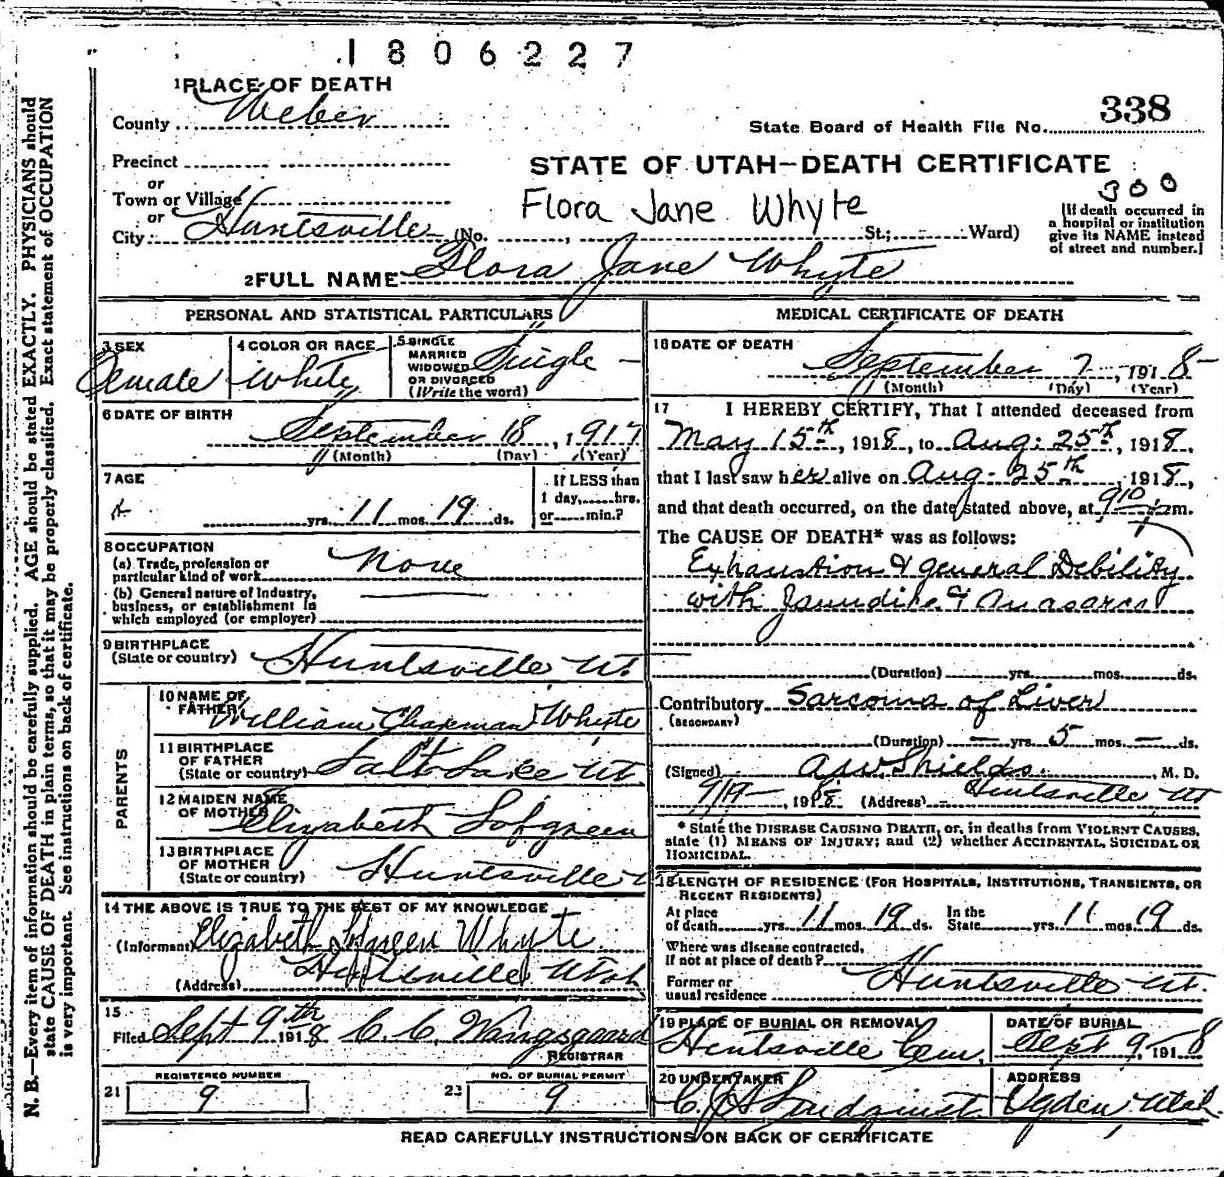 1806227
1 PLACE OF DEATH
County Weber
338
State Board of Health File No.
Precinct
or
Town or Village
or
City Huntsville (No. , St.; Ward)
STATE OF UTAH—DEATH CERTIFICATE
Flora Jane Whyte
300
[If death occurred in
a hospital or institution
give its NAME instead
of street and number.]
2 FULL NAME Flora Jane Whyte
PERSONAL AND STATISTICAL PARTICULARS
3 SEX
Female
4 COLOR OR RACE
White
5 SINGLE
MARRIED
WIDOWED
OR DIVORCED
(Write the word)
Single
6 DATE OF BIRTH
September 18, 1917
(Month) (Day) (Year)
7 AGE
yrs. 11 mos. 19 ds.
If LESS than
1 day, hrs.
or min.?
8 OCCUPATION
(a) Trade, profession or
particular kind of work None
(b) General nature of Industry,
business, or establishment in
which employed (or employer)
9 BIRTHPLACE
(State or country) Huntsville Ut.
PARENTS
10 NAME OF
FATHER William Chapman Whyte
11 BIRTHPLACE
OF FATHER
(State or country) Salt Lake Ut
12 MAIDEN NAME
OF MOTHER Elizabeth Lofgreen
13 BIRTHPLACE
OF MOTHER
(State or country) Huntsville
14 THE ABOVE IS TRUE TO THE BEST OF MY KNOWLEDGE
(Informant) Elizabeth Lofgreen Whyte
(Address) Huntsville Utah
15
Filed Sept 9th 1918 C. C. Wangsgaard
REGISTRAR
REGISTERED NUMBER
21 9
NO. OF BURIAL PERMIT
22 9
MEDICAL CERTIFICATE OF DEATH
16 DATE OF DEATH
September 7, 1918
(Month) (Day) (Year)
17 I HEREBY CERTIFY, That I attended deceased from
May 15th, 1918, to Aug. 25th, 1918,
that I last saw her alive on Aug. 25th, 1918,
and that death occurred, on the date stated above, at 9 10 m.
The CAUSE OF DEATH* was as follows:
Exhaustion & general Debility
with Jaundice & Anasarca
(Duration) yrs. mos. ds.
Contributory Sarcoma of Liver
(SECONDARY)
(Duration) — yrs. 5 mos. — ds.
(Signed) A.W. Shields, M. D.
9/9, 1918 (Address) Huntsville Ut
* State the DISEASE CAUSING DEATH, or, in deaths from VIOLENT CAUSES,
state (1) MEANS OF INJURY; and (2) whether ACCIDENTAL, SUICIDAL OR
HOMICIDAL.
18 LENGTH OF RESIDENCE (FOR HOSPITALS, INSTITUTIONS, TRANSIENTS, OR
RECENT RESIDENTS)
At place
of death yrs. 11 mos. 19 ds.
In the
State yrs. 11 mos. 19 ds.
Where was disease contracted,
if not at place of death?
Former or
usual residence Huntsville Ut.
19 PLACE OF BURIAL OR REMOVAL
Huntsville Cem.
DATE OF BURIAL
Sept 9, 1918
20 UNDERTAKER
Lindquist
ADDRESS
Ogden, Utah
READ CAREFULLY INSTRUCTIONS ON BACK OF CERTIFICATE
N. B.—Every item of information should be carefully supplied. AGE should be stated EXACTLY. PHYSICIANS should
state CAUSE OF DEATH in plain terms, so that it may be properly classified. Exact statement of OCCUPATION
is very important. See instructions on back of certificate.